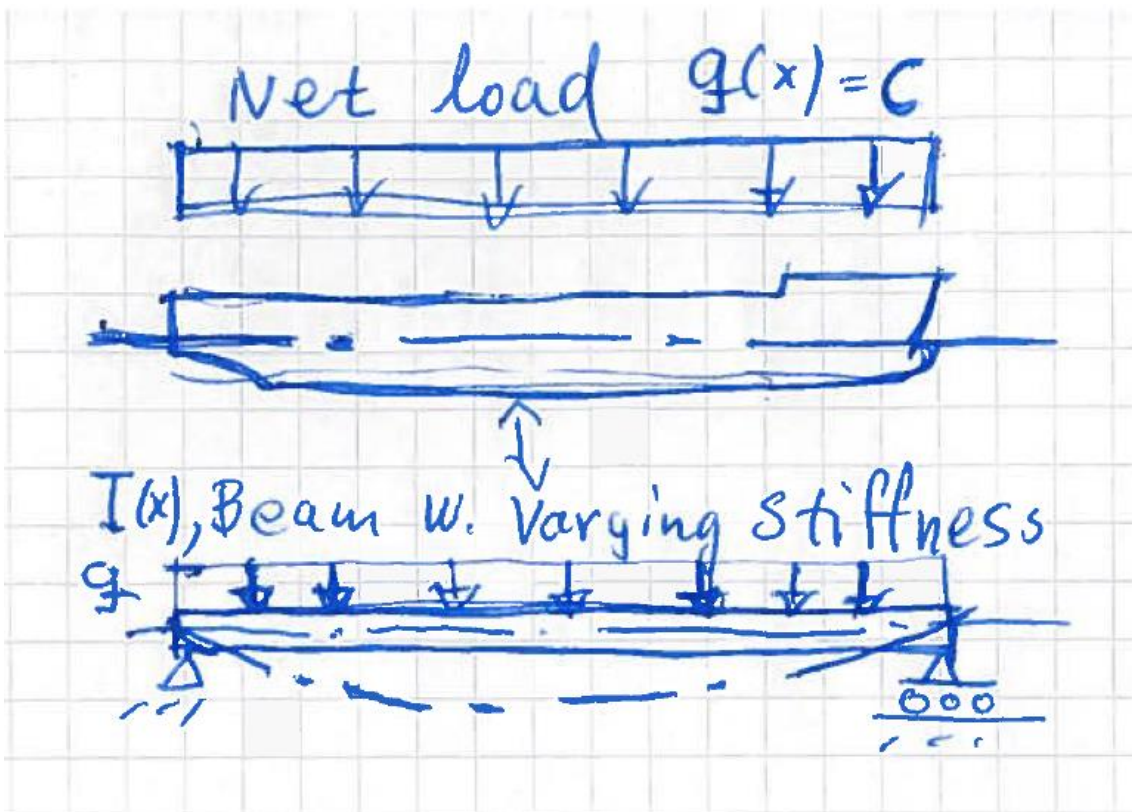 Net load q(x) = C
I(x), Beam w. Varying Stiffness
q